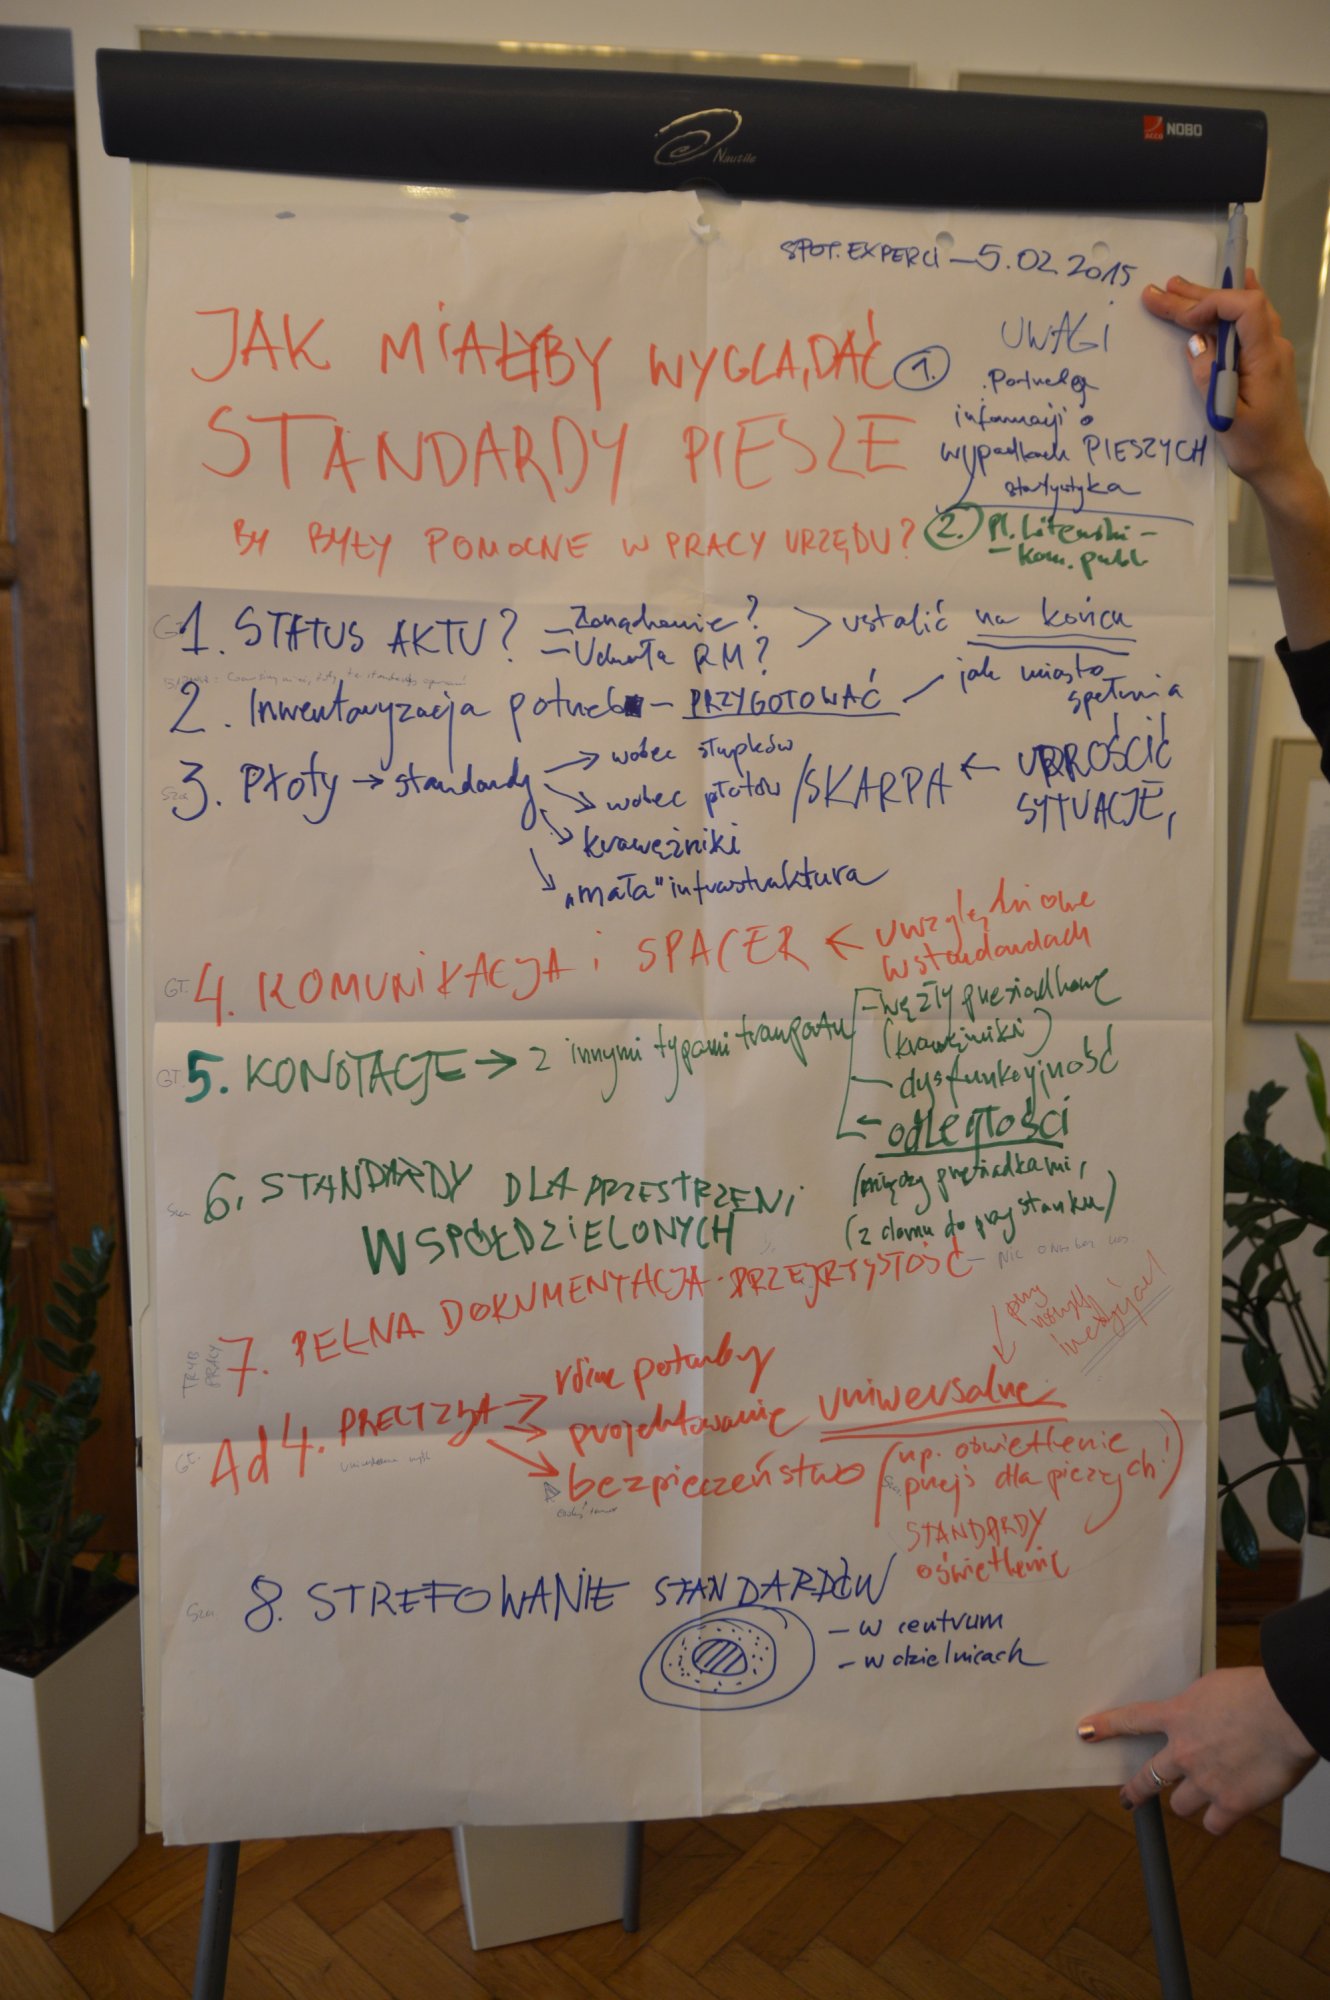 Nautile
ACCO NOBO
SPOT. EXPERCI – 5.02.2015
JAK MIAŁYBY WYGLĄDAĆ
STANDARDY PIESZE
BY BYŁY POMOCNE W PRACY URZĘDU?
UWAGI
1. Potrzeba
informacji o
wypadkach PIESZYCH
statystyka
2. Pl. Litewski –
– kom. publ.
1. STATUS AKTU? – Zarządzenie? > ustalić na końcu
– Uchwała RM?
2. Inwentaryzacja potrzeb – PRZYGOTOWAĆ – jak miasto
spełnia
3. Płoty → standardy → wobec słupków
→ wobec płotów / SKARPA ← UPROŚCIĆ
SYTUACJĘ,
→ krawężniki
→ „mała" infrastruktura
GT. 4. KOMUNIKACJA i SPACER ← uwzględnione
w standardach
GT. 5. KONOTACJE → z innymi typami transportu – węzły przesiadkowe
(krawężniki)
– dysfunkcyjność
← odległości
(między przesiadkami,
(z domu do przystanku)
6. STANDARDY DLA PRZESTRZENI
WSPÓŁDZIELONYCH
TRYB
PRACY
7. PEŁNA DOKUMENTACJA · PRZEJRZYSTOŚĆ
przy
nowych
inwestycjach
Ad 4. PRECYZJA → różne potrzeby
→ projektowanie uniwersalne
→ bezpieczeństwo (np. oświetlenie
przejść dla pieszych!)
STANDARDY
oświetlenie
8. STREFOWANIE STANDARDÓW
– w centrum
– w dzielnicach